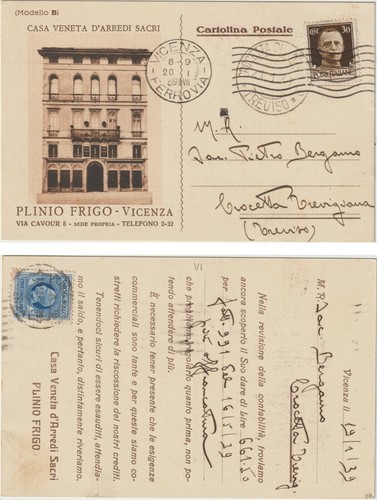 (Modello B)
CASA VENETA D'ARREDI SACRI
PLINIO FRIGO - VICENZA
VIA CAVOUR 8 - SEDE PROPRIA - TELEFONO 2-32
Cartolina Postale
VICENZA
8-9
20 1
FERROVIA
TREVISO
CENT 30
POSTE ITALIANE
M. R.
Don Pietro Bergamo
Crocetta Trevigiana
(Treviso)
VI
Vicenza li 19/1/39
M. R. Don Bergamo
Crocetta Trevig
Nella revisione della contabilità, troviamo
ancora scoperto il Suo dare di Lire 661.60
per fatt. 391 del 16/5/39
più affrancatura
che preghiamo saldarlo quanto prima, non po-
tendo attendere di più.
È necessario tener presente che le esigenze
commerciali sono tante e per queste siamo co-
stretti richiedere la riscossione dei nostri crediti.
Tenendoci sicuri di essere esauditi, attendia-
mo il saldo, e pertanto, distintamente riveriamo.
Casa Veneta d'Arredi Sacri
PLINIO FRIGO